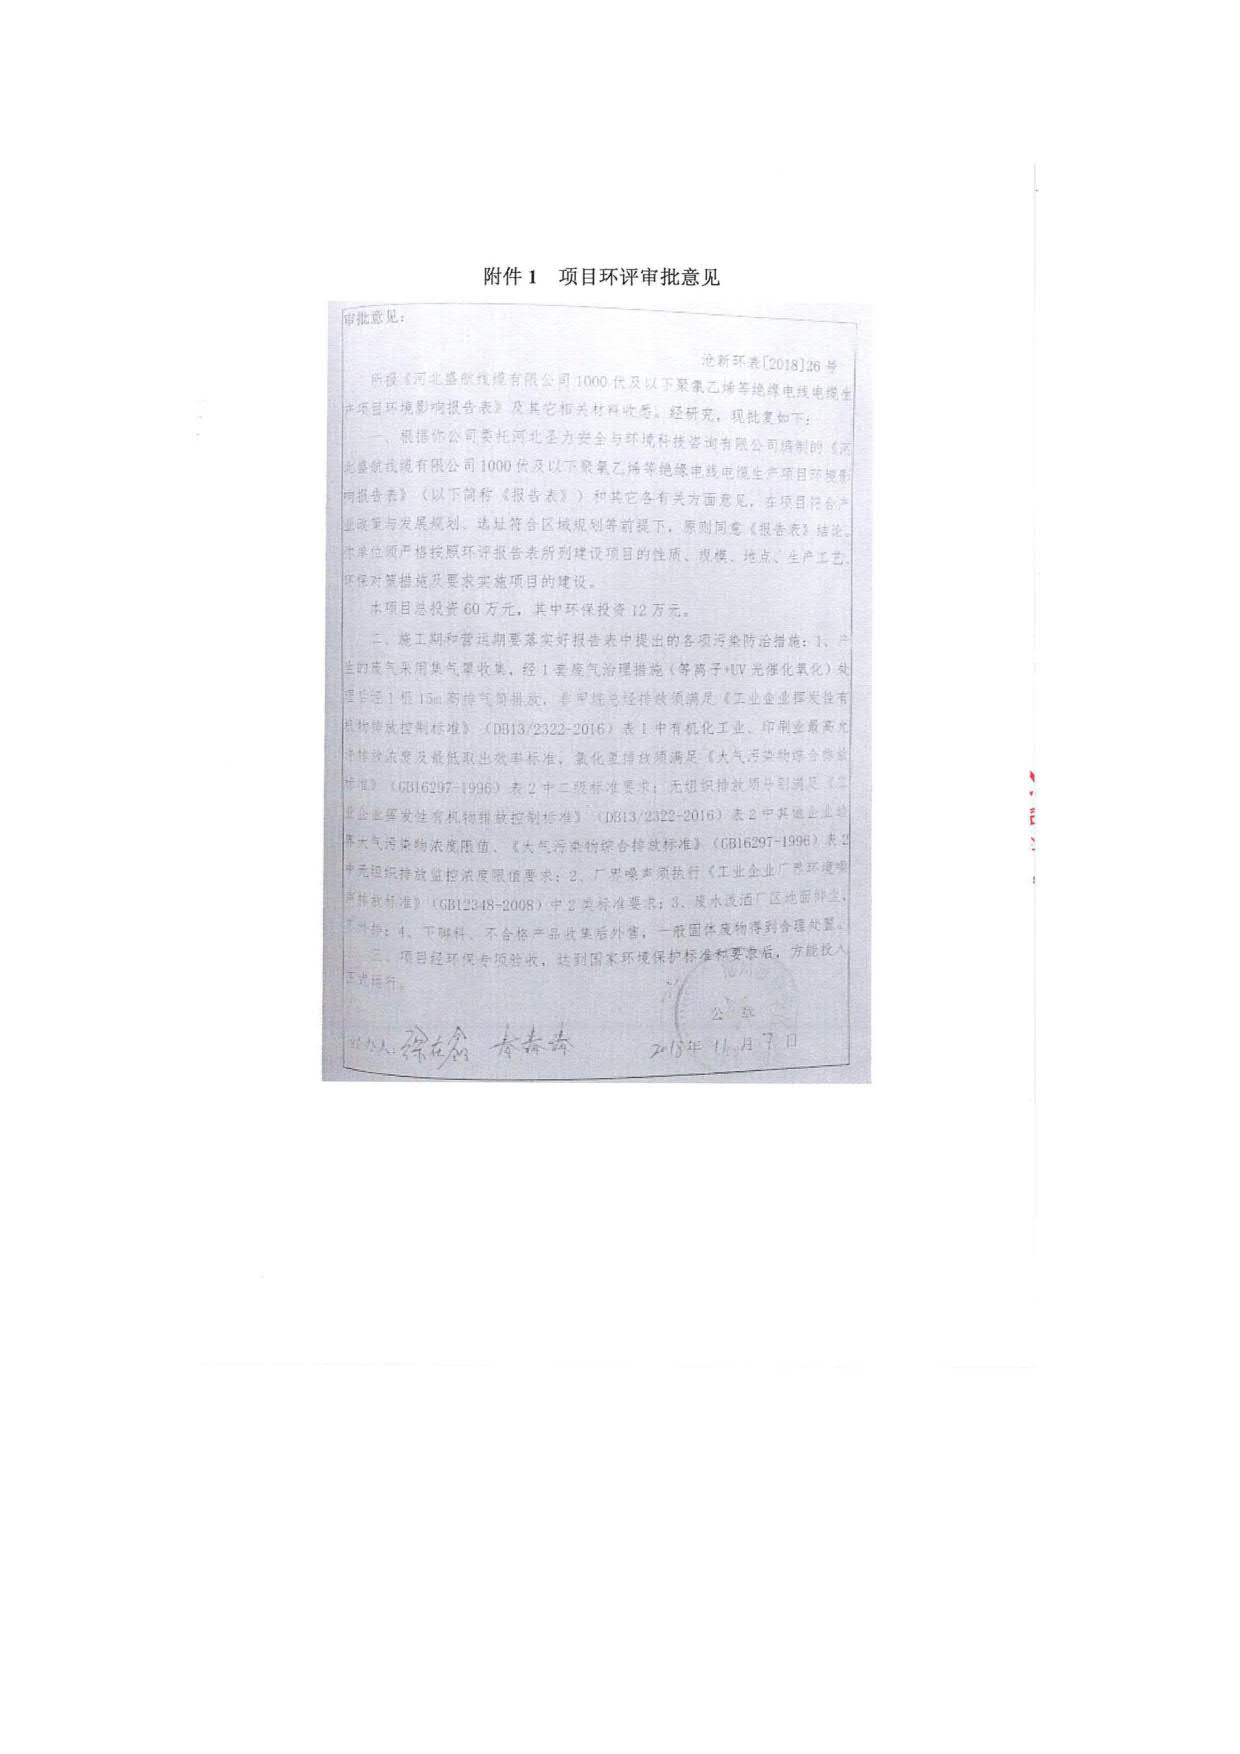 附件 1 项目环评审批意见
审批意见：
沧新环表[2018]26 号
所报《河北盛航线缆有限公司1000 伏及以下聚氯乙烯等绝缘电线电缆生
产项目环境影响报告表》及其它相关材料收悉。经研究，现批复如下：
一、根据你公司委托河北圣力安全与环境科技咨询有限公司编制的《河
北盛航线缆有限公司1000 伏及以下聚氯乙烯等绝缘电线电缆生产项目环境影
响报告表》（以下简称《报告表》）和其它各有关方面意见，在项目符合产
业政策与发展规划、选址符合区域规划等前提下，原则同意《报告表》结论。
你单位须严格按照环评报告表所列建设项目的性质、规模、地点、生产工艺、
环保对策措施及要求实施项目的建设。
本项目总投资 60 万元，其中环保投资 12 万元。
二、施工期和营运期要落实好报告表中提出的各项污染防治措施：1、产
生的废气采用集气罩收集，经 1 套废气治理措施（等离子+UV 光催化氧化）处
理后经 1 根 15m 高排气筒排放，非甲烷总烃排放须满足《工业企业挥发性有
机物排放控制标准》（DB13/2322-2016）表 1 中有机化工业、印刷业最高允
许排放浓度及最低取出效率标准，氯化氢排放须满足《大气污染物综合排放
标准》（GB16297-1996）表 2 中二级标准要求；无组织排放须分别满足《工
业企业挥发性有机物排放控制标准》（DB13/2322-2016）表 2 中其他企业边
界大气污染物浓度限值、《大气污染物综合排放标准》（GB16297-1996）表 2
中无组织排放监控浓度限值要求；2、厂界噪声须执行《工业企业厂界环境噪
声排放标准》（GB12348-2008）中 2 类标准要求；3、废水泼洒厂区地面抑尘，
不外排；4、下脚料、不合格产品收集后外售，一般固体废物得到合理处置。
三、项目经环保专项验收，达到国家环境保护标准和要求后，方能投入
正式运行。
公 章
经办人：徐在鑫
2018年 11 月 7 日